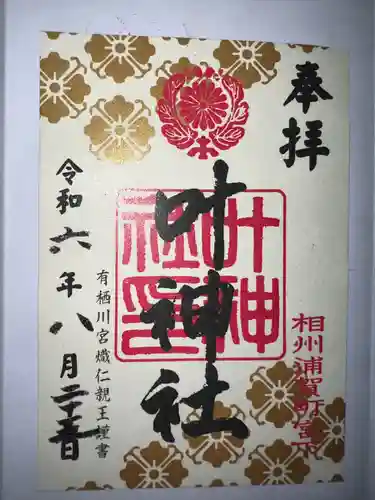 奉拝
相州浦賀町宮下
叶神社
叶神社印
有栖川宮熾仁親王謹書
令和六年八月二十五日